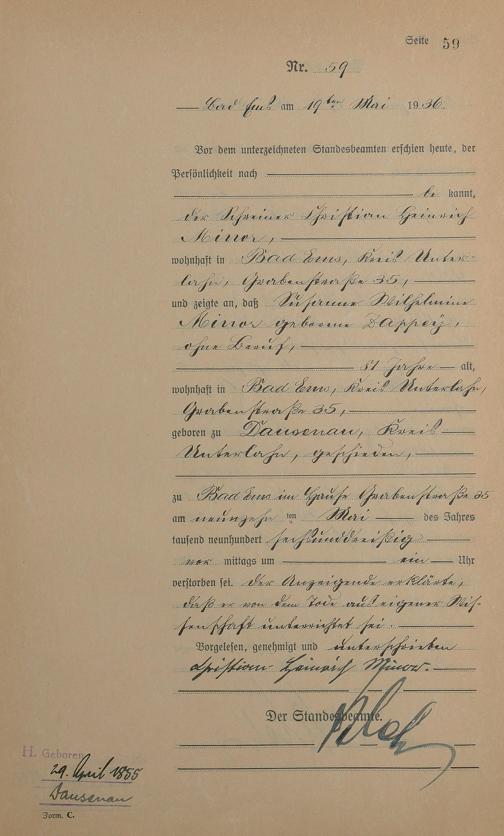 Seite 59
Nr. 59
Bad Ems am 19ten Mai 1936.
Vor dem unterzeichneten Standesbeamten erschien heute, der
Persönlichkeit nach
be kannt,
der Schreiner Christian Heinrich
Minor,
wohnhaft in Bad Ems, Kreis Unter-
lahn, Grabenstraße 35,
und zeigte an, daß Susanne Wilhelmine
Minor geborene
ohne Beruf,
81 Jahre alt,
wohnhaft in Bad Ems, Kreis Unterlahn,
Grabenstraße 35,
geboren zu Dausenau, Kreis
Unterlahn, geschieden,
zu Bad Ems im Hause Grabenstraße 35
am neunzehnten Mai des Jahres
tausend neunhundert sechsunddreißig
vor mittags um ein Uhr
verstorben sei. Der Anzeigende erklärte,
daß er von dem Tode aus eigener Wis-
senschaft unterrichtet sei.
Vorgelesen, genehmigt und unterschrieben
Christian Heinrich Minor.
Der Standesbeamte.
H. Geboren
29. April 1855
Dausenau
Form. C.